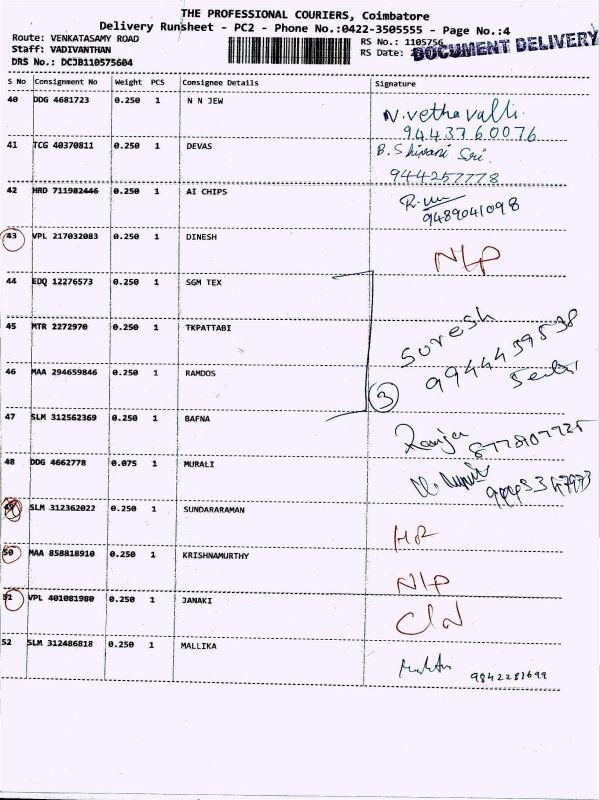 THE PROFESSIONAL COURIERS, Coimbatore
Delivery Runsheet - PC2 - Phone No.:0422-3505555 - Page No.:4
Route: VENKATASAMY ROAD
Staff: VADIVANTHAN
DRS No.: DCJB110575604
RS No.: 1105756
RS Date:
DOCUMENT DELIVERY
S No Consignment No Weight PCS Consignee Details Signature
40 DDG 4681723 0.250 1 N N JEW
N.vethavalli
9443760076
41 TCG 40370811 0.250 1 DEVAS
B.Shivani Sri.
9444257778
42 HRD 711982446 0.250 1 AI CHIPS
9489041098
43 VPL 217032083 0.250 1 DINESH
NLP
44 EDQ 12276573 0.250 1 SGM TEX
45 MTR 2272970 0.250 1 TKPATTABI
Suresh
9944439538
46 MAA 294659846 0.250 1 RAMDOS
3
47 SLM 312562369 0.250 1 BAFNA
8778107725
48 DDG 4662778 0.075 1 MURALI
49 SLM 312362022 0.250 1 SUNDARARAMAN
50 MAA 858818910 0.250 1 KRISHNAMURTHY
NLP
51 VPL 401081980 0.250 1 JANAKI
52 SLM 312486818 0.250 1 MALLIKA
9842281699